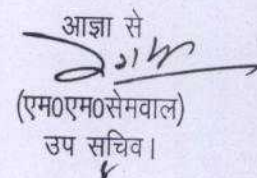 आज्ञा से
(एम0एम0सेमवाल)
उप सचिव।